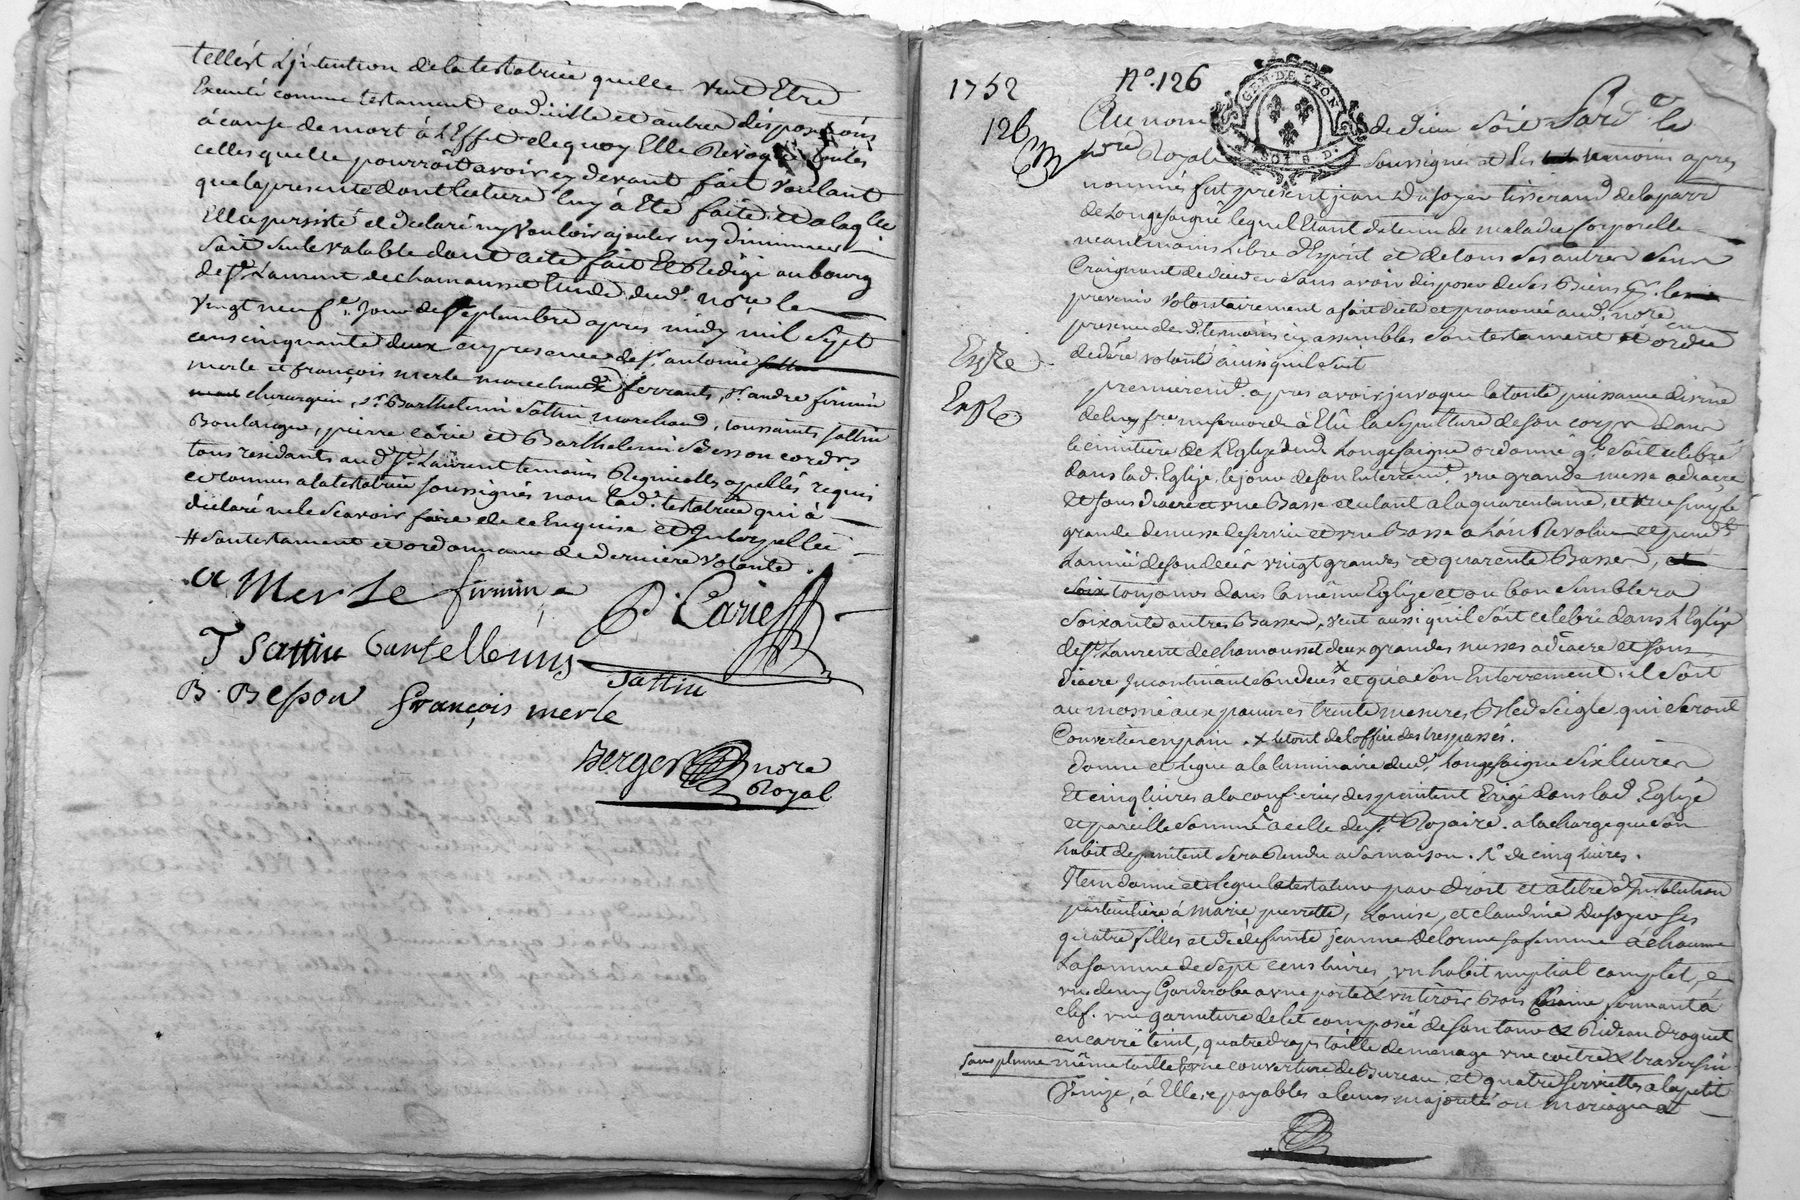 tellest L'jntention de la testatrice quelle veut Etre
Executé comme testament codicille et autres dispositions
à cause de mort à L'Effet de quoy Elle Revoque toutes
celles quelle pourroit avoir cy devant fait voulant
que la presente dont lecture luy à Eté faite et a laqlle
Elle à persisté et declaré ny vouloir ajouter ny diminuer
soit seule valable dont acte fait Et Redigé au bourg
de st Laurent de chamousset Etude dud. nore le
vingt neufe. Jour de septembre apres midy mil sept
cens cinquante deux en presence de sr. antoine
merle et françois merle marechaux ferrants, sr. andre firmin
chirurgien, sr. Barthelemi Sattin marchand, toussaints sattin
Boulanger, pierre Carie et Barthelemi Besson cordrs
tous residants aud. st. Laurent temoins Reqnicolles apellés requis
et connus a la testatrice soussignés non lad. testatrice qui à
declaré ne le scavoir faire de ce Enquise et Interpellée
# son testament et ordonnance de derniere volonté.
a Merle firmin
P. Carie
T Sattin
Sattin
B. Besson françois merle
Berger nore
Royal
1752 No. 126
126
GEN. DE LYON
Au nom de dieu soit Pardt le
nore Royal soussigné et les temoins apres
nommés fut present jean Dusoyer tisserand de la parr
de Longesaigne lequel Etant detenu de maladie corporelle
neantmoins Libre d'Esprit et de tous ses autres sens
Craignant de deceder sans avoir disposer de ses Biens
prevenir volontairement a fait dicté et prononcé aud. nore en
presence desd. temoins icy assemblés son testament et ordce
de dere volonté ainsi quil suit
premierement. apres avoir jnvoque la toute puissance divine
à Elû la sepulture de son corps dans
le cimitiere de L'Eglise dud. Longesaigne ordonne qe. soit celebré
dans lad. Eglise le jour de son Enterremt. une grande messe a diacre
et sous diacre et une Basse et autant a la quarantaine, et une simple
grande de messe de service et une Basse a L'an Revolue et pendt.
L'année de son deces vingt grandes et quarante Basses,
toujours dans la même Eglise et ou bon semblera
soixante autres Basses, veut aussi quil soit celebré dans L'Eglise
de st. Laurent de chamousset deux grandes messes a diacre et sous
diacre Incontinant son deces x et qu'a son Enterrement il soit
aumoné aux pauvres trente mesures Bled seigle qui seront
Converties en pain. x letout de loffice des trespassés.
donne et Legue a la luminaire dud. Longesaigne six livres
Et cinq livres a la confrerie des penitent Erigé dans lad. Eglise
et pareille somme a celle du st. Rozaire. a la charge que son
habit de penitent sera Rendu a sa maison. Rd. de cinq livres.
Item donne et Legue le testateur par droit et a titre d'Institution
particuliere à Marie, pierrette, Louise, et claudine Dusoyer ses
quatre filles et de defunte jeanne Delorme sa femme à chacune
La somme de sept cens livres, un habit nuptial complet,
une demy Garderobe a une porte & un tiroir Bois fermant à
clef. une garniture de lit composée de son tour & Rideau droguet
en carré teint, quatre draps toille de menage une coitre & traversin
sans plume même toille & une couverture de Bureau, et quatre serviettes a la petit
Venize, à Elles payables a leurs majorité ou mariage et